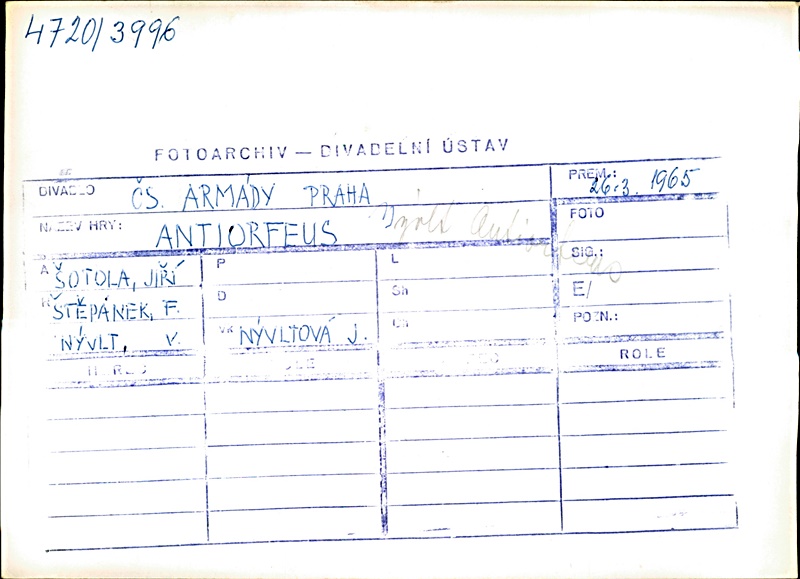 4720/3996
FOTOARCHIV — DIVADELNÍ ÚSTAV
DIVADLO ČS. ARMÁDY PRAHA
PREM.: 26.3. 1965
NÁZEV HRY: ANTIORFEUS
FOTO
A ŠOTOLA, JIŘÍ
P
L
SIG.:
R ŠTĚPÁNEK, F.
D
Sh
E/
NÝVLT, V.
VK NÝVLTOVÁ J.
Ch
POZN.:
ROLE